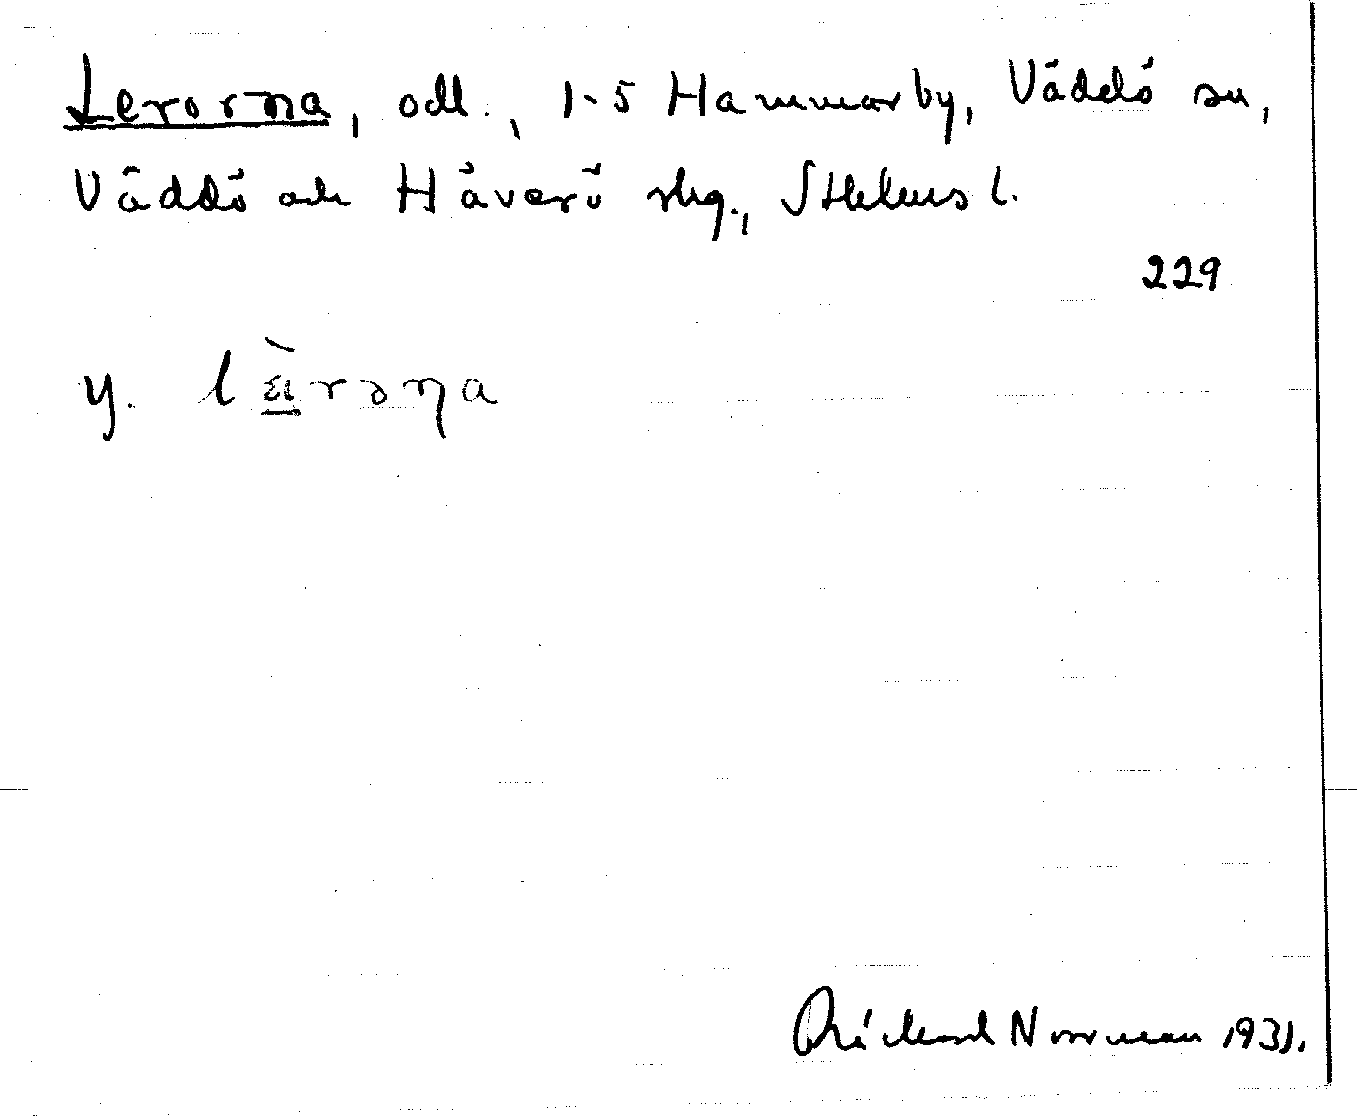 Lerorna, odl., 1-5 Hammarby, Väddö sn,
Väddö och Häverö skg., Sthlms l.
229
y. lä̀rəna
Rickard Norrman 1931.